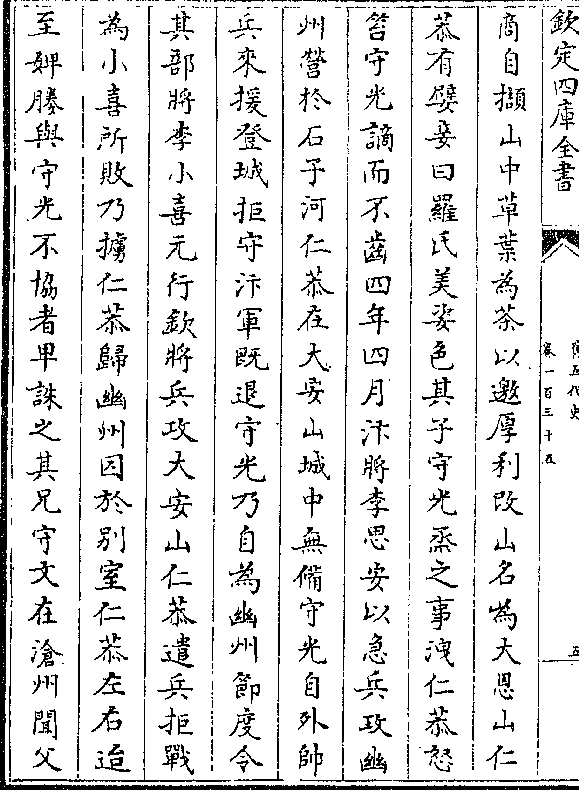 欽定四庫全書
舊五代史
卷一百三十五
五
商自擷山中草葉為茶以邀厚利改山名為大恩山仁
恭有嬖妾曰羅氏美姿色其子守光烝之事洩仁恭怒
笞守光謫而不齒四年四月汴將李思安以急兵攻幽
州營於石子河仁恭在大安山城中無備守光自外帥
兵來援登城拒守汴軍既退守光乃自為幽州節度令
其部將李小喜元行欽將兵攻大安山仁恭遣兵拒戰
為小喜所敗乃擄仁恭歸幽州囚於别室仁恭左右迨
至婢媵與守光不協者畢誅之其兄守文在滄州聞父